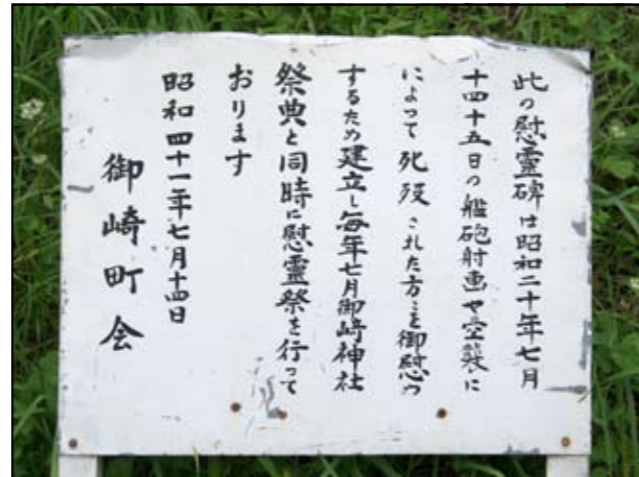 此の慰霊碑は昭和二十年七月
十四十五日の艦砲射画や空襲に
によって死歿された方々を御慰め
するため建立し毎年七月御崎神社
祭典と同時に慰霊祭を行って
おります
昭和四十一年七月十四日
御崎町会